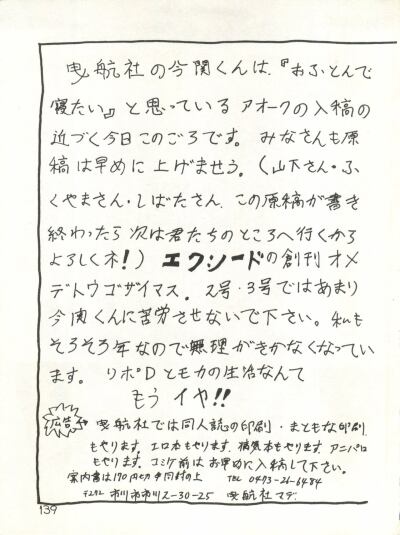 曳航社の今関くんは、『おふとんで
寝たい』と思っているアオークの入稿の
近づく今日このごろです。みなさんも原
稿は早めに上げませう。(山下さん・ふ
くやまさん・しばたさん、この原稿が書き
終わったら次は君たちのところへ行くから
よろしくネ!) エクソードの創刊オメ
デトウゴザイマス。2号・3号ではあまり
今関くんに苦労させないで下さい。私も
そろそろ年なので無理がきかなくなってい
ます。リポDとモカの生活なんて
もうイヤ!!
広告 曳航社では同人誌の印刷・まともな印刷
もやります。エロ本もやります。病気本もやります。アニパロ
もやります。コミケ前はお早めに入稿して下さい。
案内書は170円切手同封の上 TEL 0473-26-6484
市川市市川2-30-25 曳航社マデ
139